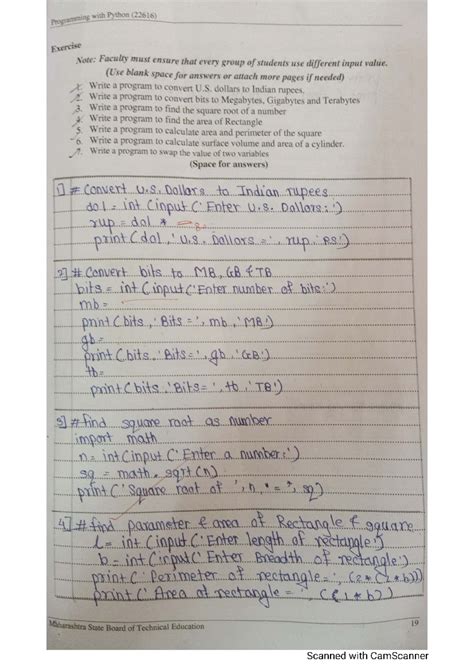 Programming with Python (22616)
Exercise
Note: Faculty must ensure that every group of students use different input value.
(Use blank space for answers or attach more pages if needed)
1. Write a program to convert U.S. dollars to Indian rupees.
2. Write a program to convert bits to Megabytes, Gigabytes and Terabytes
3. Write a program to find the square root of a number
4. Write a program to find the area of Rectangle
5. Write a program to calculate area and perimeter of the square
6. Write a program to calculate surface volume and area of a cylinder.
7. Write a program to swap the value of two variables
(Space for answers)
1] # Convert U.S. Dollars to Indian rupees
dol = int (input ('Enter U.S. Dollars:')
rup = dol *
print (dol ,' U.S. Dollars =', rup 'RS')
2] # Convert bits to MB, GB & TB
bits = int (input ('Enter number of bits:')
mb =
print (bits ,'Bits =', mb ,'MB!)
gb =
print (bits ,'Bits=', gb 'GB!)
tb=
print (bits ,'Bits= ', tb ,'TB!)
3] # find square root as number
import math
n = int (input ('Enter a number:')
sq = math. sqrt (n)
print ('Square root of ', n, "= ", sq)
4] # find parameter & area of Rectangle & square
l = int (input ('Enter length of rectangle:')
b = int (input ('Enter Breadth of rectangle:')
print ('Perimeter of rectangle = ', (2*(l*b)))
print ('Area of rectangle = ', (l*b)
Maharashtra State Board of Technical Education
19
Scanned with CamScanner